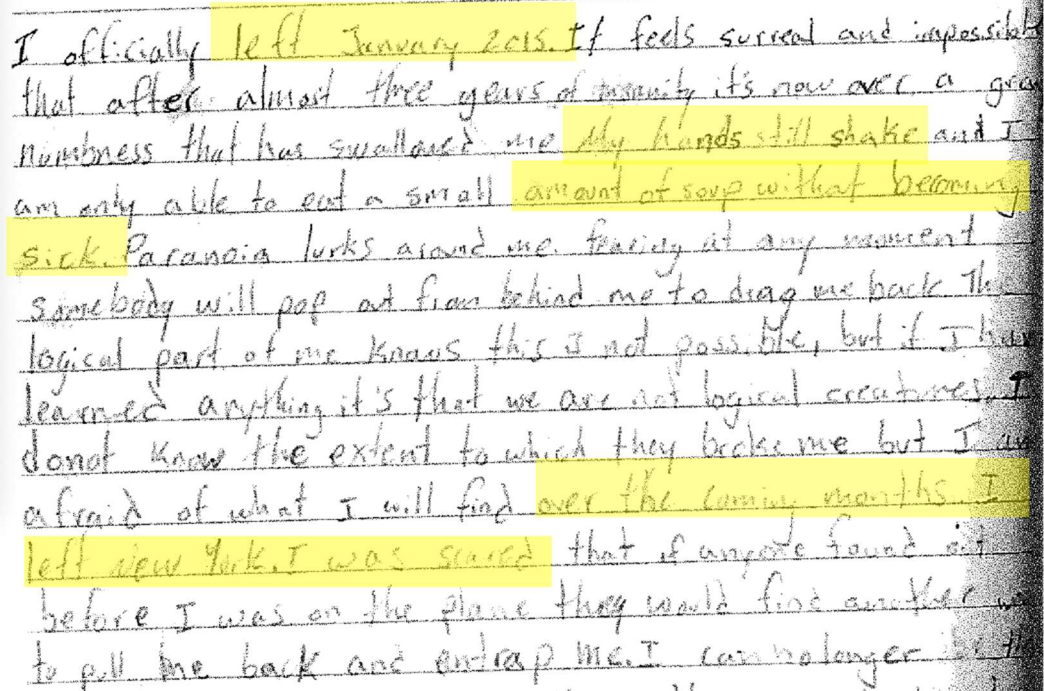 I officially left January 2015. It feels surreal and impossible
that after almost three years of insanity it's now over. a
numbness that has swallowed me My hands still shake and I
am only able to eat a small amount of soup without becoming
sick. Paranoia lurks around me. fearing at any moment
somebody will pop out from behind me to drag me back The
logical part of me knows this is not possible, but if I have
learned anything it's that we are not logical creatures. I
donot know the extent to which they broke me but I am
afraid of what I will find over the coming months. I
left New York. I was scared that if anyone found out
before I was on the plane they would find another
to pull me back and entrap me. I can no longer